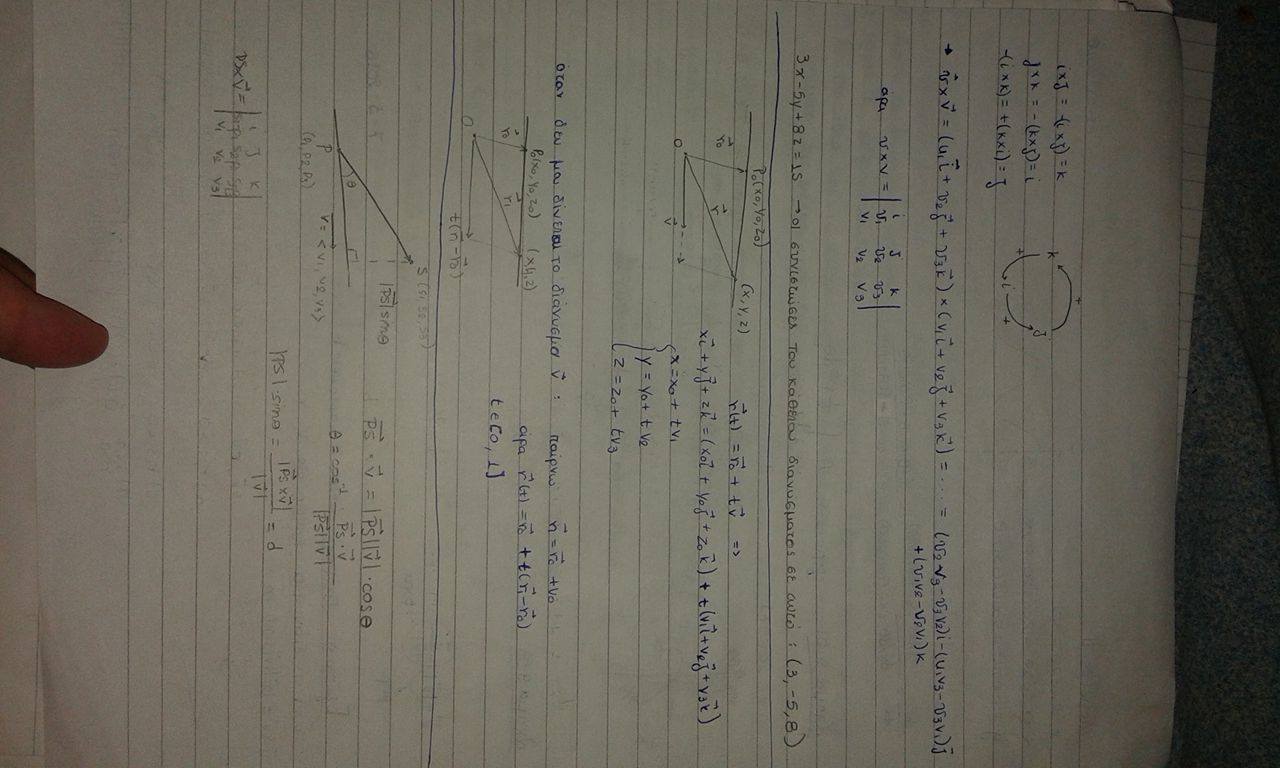 i×j = -(i×j) = k
j×k = -(k×j) = i
-(i×k) = +(k×i) = j
k
+
j
+
i
+
→ v⃗×v⃗ = (u₁i⃗ + v₂j⃗ + v₃k⃗) × (v₁i⃗ + v₂j⃗ + v₃k⃗) = ..... = (v₂v₃ - v₃v₂)i - (u₁v₃ - v₃v₁)j
+ (v₁v₂ - v₂v₁)k
αρα v×v = | i j k |
| v₁ v₂ v₃ |
| v₁ v₂ v₃ |
3x - 5y + 8z = 15 → οι συνιστώσες του κάθετου διανύσματος σε αυτό : (3, -5, 8)
P₀(x₀, y₀, z₀)
(x, y, z)
r⃗₀
r⃗
O
v⃗
r⃗(t) = r⃗₀ + tv⃗ =>
xi⃗ + yj⃗ + zk⃗ = (x₀i⃗ + y₀j⃗ + z₀k⃗) + t(v₁i⃗ + v₂j⃗ + v₃k⃗)
{ x = x₀ + tv₁
y = y₀ + tv₂
z = z₀ + tv₃
οταν δεν μου δινεται το διάνυσμα v⃗ : παίρνω r⃗₁ = r⃗₀ + v₀
P₀(x₀, y₀, z₀) (x, y, z)
r⃗₀
r⃗₁
O
t(r⃗₁ - r⃗₀)
αρα r⃗(t) = r⃗₀ + t(r⃗₁ - r⃗₀)
t ∈ [0, 1]
S (s₁, s₂, s₃)
|P⃗S|sinθ
P
θ
(p₁, p₂, p₃)
v = <v₁, v₂, v₃>
P⃗S · v⃗ = |P⃗S||v⃗| · cosθ
θ = cos⁻¹ P⃗S · v⃗ / |P⃗S||v⃗|
|PS| · sinθ = |P⃗S × v⃗| / |v⃗| = d
PS×v⃗ = | i j k |
| v₁ v₂ v₃ |